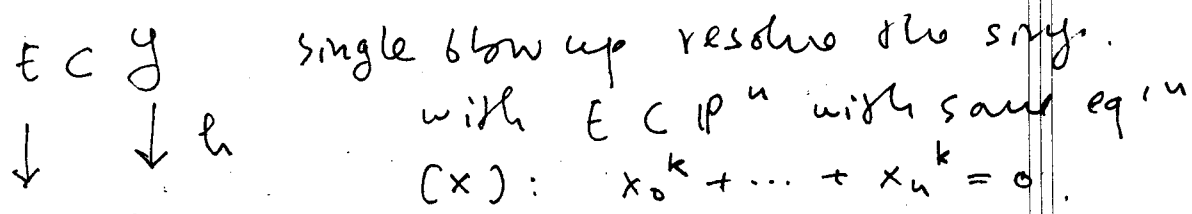 E ⊂ Y single blow up resolve the sing.
↓ ↓ h with E ⊂ ℙⁿ with same eq'n
(x): x₀ᵏ + ... + xₙᵏ = 0.